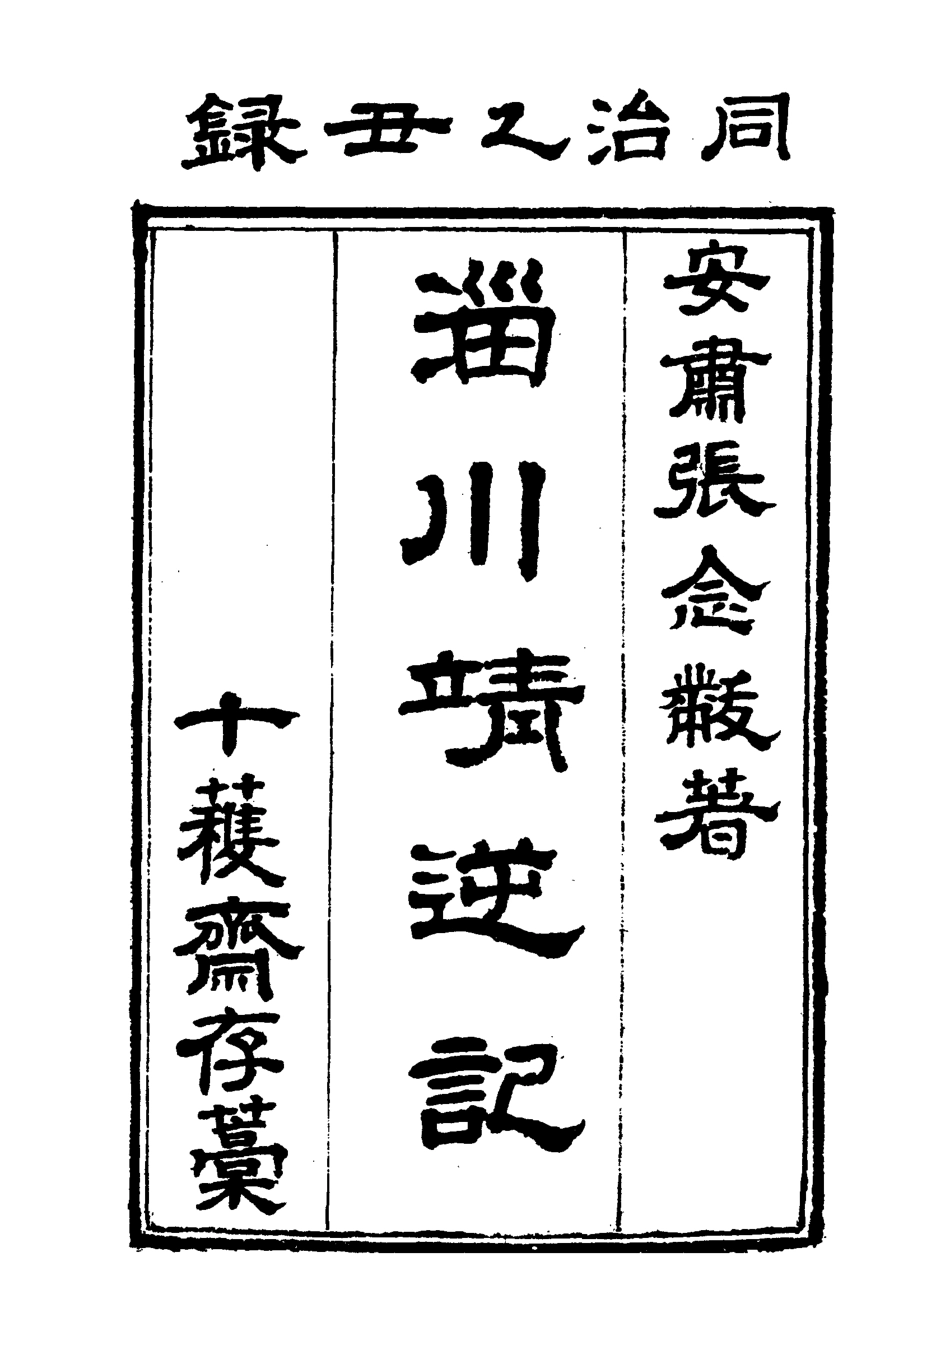 同治乙丑録
安肅張念黻著
淄川靖逆記
十穫齋存藁